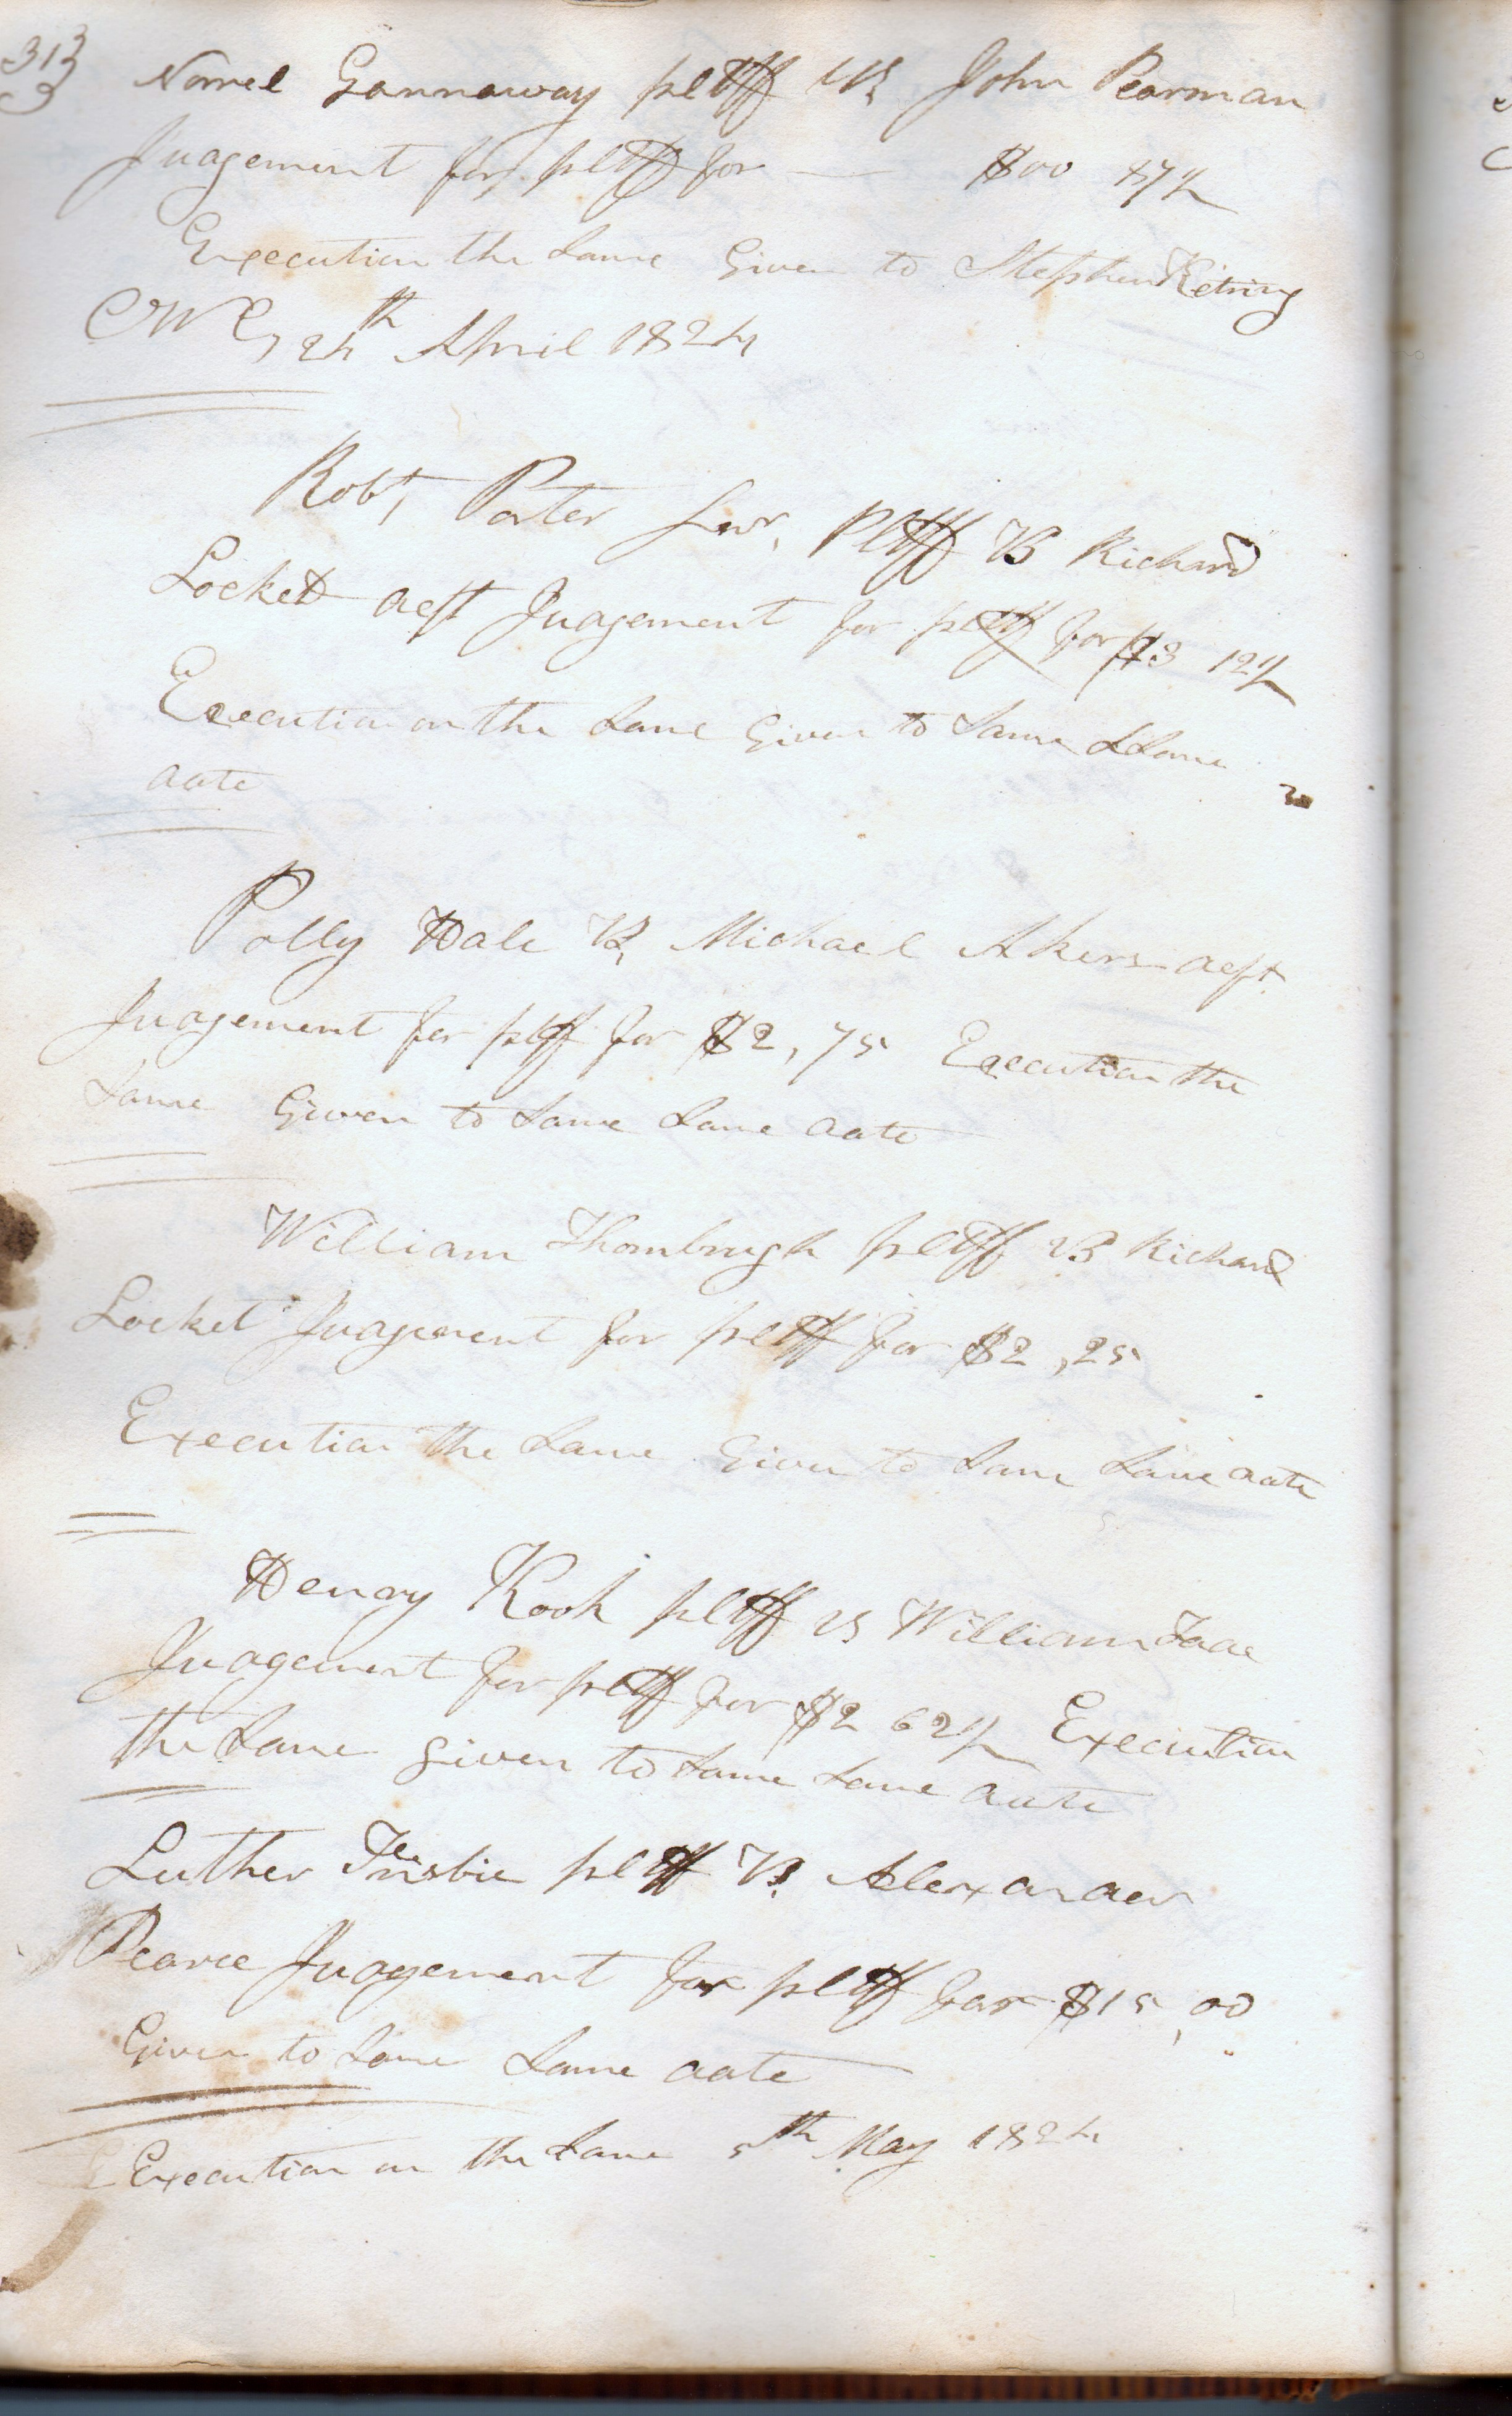 313
Norrel Gannaway pltff vs John Pearman
Judgement for pltff for — $00 87½
Execution the Same Given to Stephen Kitring
CWC, 24th April 1824
Robt, Porter Senr, Pltff vs Richard
Lockett deft Judgement for pltff for $3 12½
Execution on the Same Given to Same & Same
date
Polly Hale vs Michael Akers deft
Judgement for pltff for $2,75 Execution the
Same Given to Same Same date
William Thornbrugh pltff vs Richard
Locket Judgement for pltff for $2,25
Execution the Same Given to Same Same date
Henry Kook pltff vs William
Judgement for pltff for $2 62½ Execution
the Same given to Same Same date
Luther Frisbie pltff vs. Alexander
Pearce Judgement for pltff for $15,00
Given to Same Same date
Execution on the Same 5th May 1824